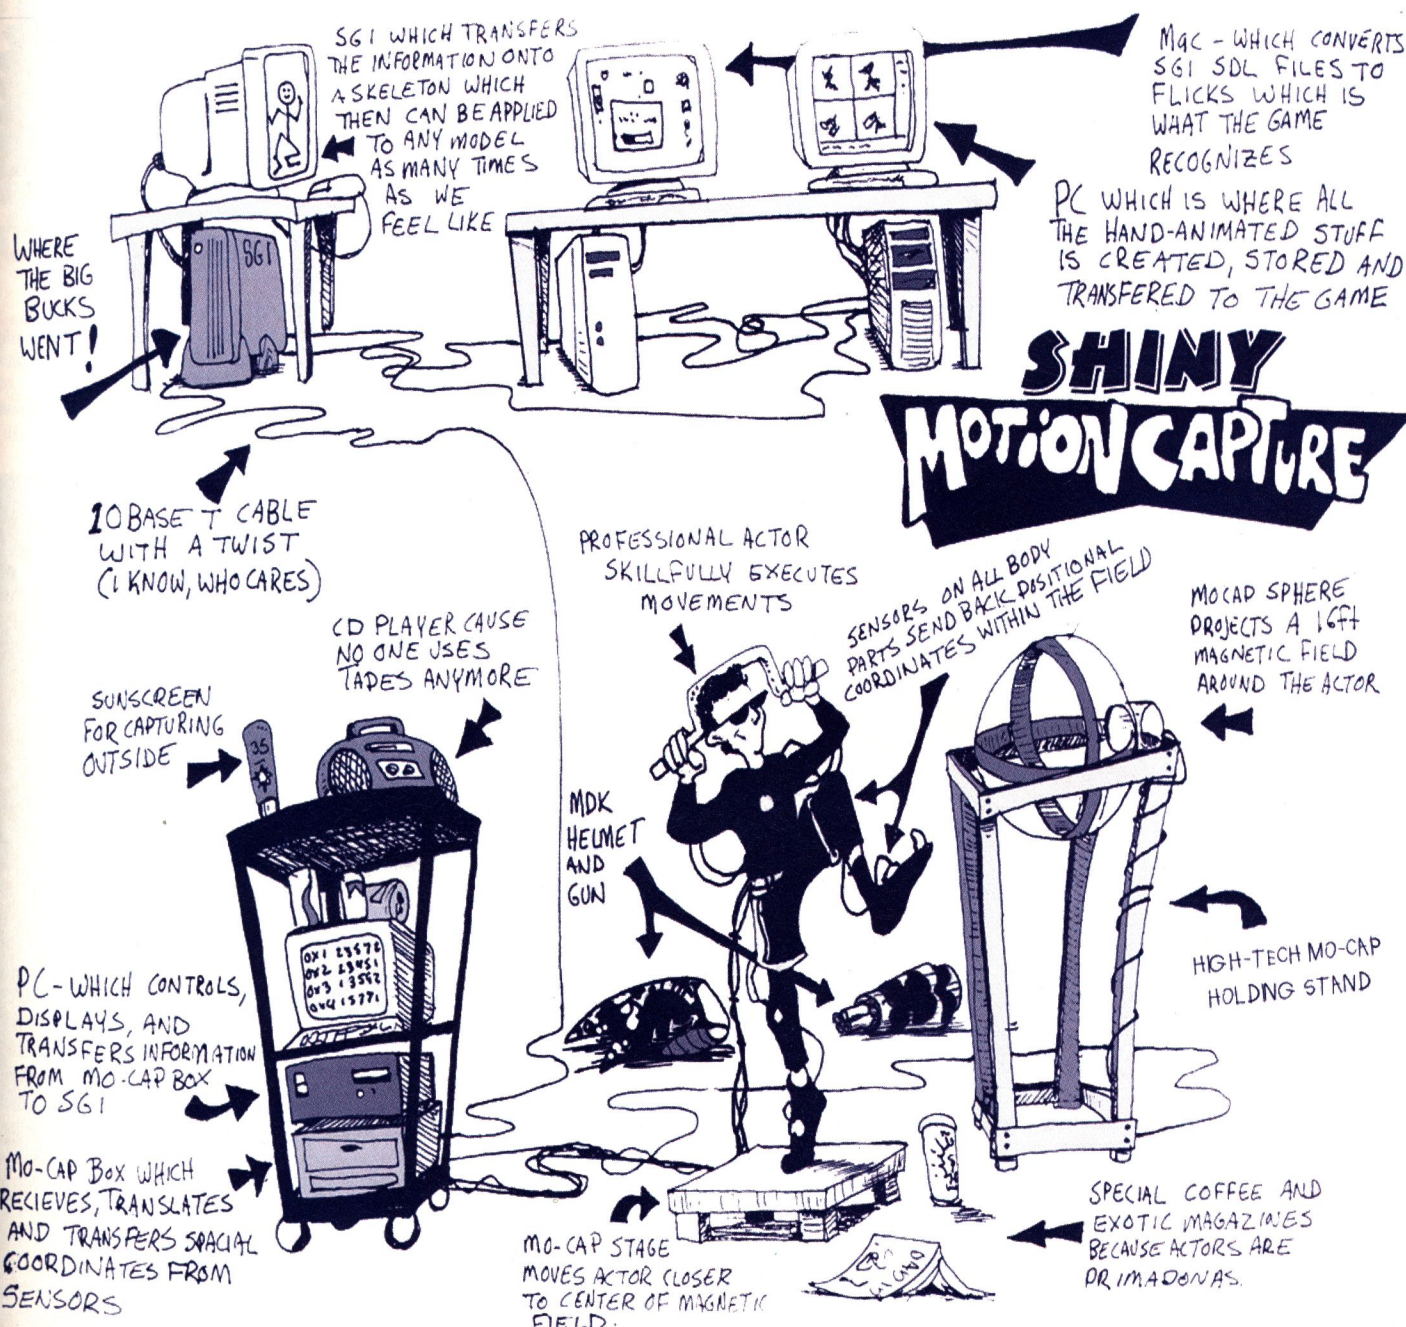 SGI WHICH TRANSFERS
THE INFORMATION ONTO
A SKELETON WHICH
THEN CAN BE APPLIED
TO ANY MODEL
AS MANY TIMES
AS WE
FEEL LIKE
MAC - WHICH CONVERTS
SGI SDL FILES TO
FLICKS WHICH IS
WHAT THE GAME
RECOGNIZES
PC WHICH IS WHERE ALL
THE HAND-ANIMATED STUFF
IS CREATED, STORED AND
TRANSFERED TO THE GAME
WHERE
THE BIG
BUCKS
WENT!
SGI
SHINY
MOTION CAPTURE
10 BASE T CABLE
WITH A TWIST
(I KNOW, WHO CARES)
PROFESSIONAL ACTOR
SKILLFULLY EXECUTES
MOVEMENTS
SENSORS ON ALL BODY
PARTS SEND BACK POSITIONAL
COORDINATES WITHIN THE FIELD
MOCAP SPHERE
PROJECTS A 16ft
MAGNETIC FIELD
AROUND THE ACTOR
CD PLAYER CAUSE
NO ONE USES
TAPES ANYMORE
SUNSCREEN
FOR CAPTURING
OUTSIDE
35
MDK
HELMET
AND
GUN
HIGH-TECH MO-CAP
HOLDNG STAND
0X1 23572
0X2 23451
0X3 13562
0X4 15771
PC - WHICH CONTROLS,
DISPLAYS, AND
TRANSFERS INFORMATION
FROM MO-CAP BOX
TO SGI
MO-CAP BOX WHICH
RECIEVES, TRANSLATES
AND TRANSFERS SPACIAL
COORDINATES FROM
SENSORS
MO-CAP STAGE
MOVES ACTOR CLOSER
TO CENTER OF MAGNETIC
FIELD.
SPECIAL COFFEE AND
EXOTIC MAGAZINES
BECAUSE ACTORS ARE
PRIMADONAS.